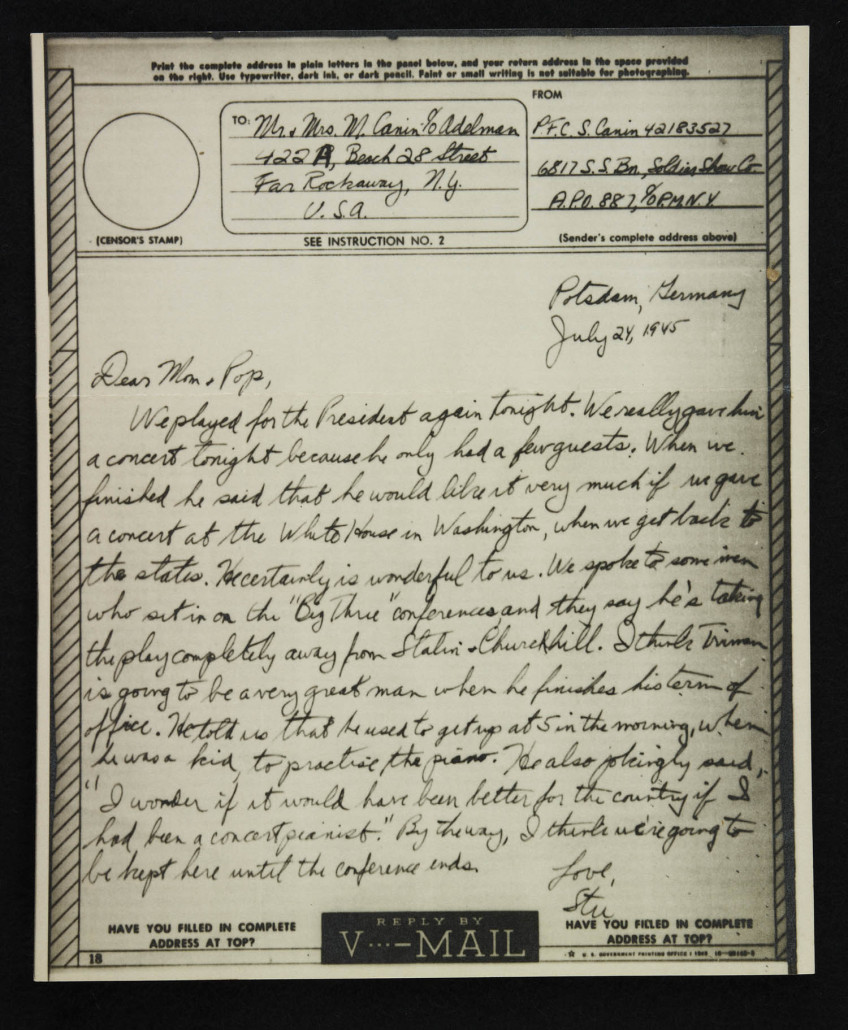 Print the complete address in plain letters in the panel below, and your return address in the space provided
on the right. Use typewriter, dark ink, or dark pencil. Faint or small writing is not suitable for photographing.
FROM
TO: Mr. & Mrs. M. Canin c/o Adelman
422 A, Beach 28 Street
Far Rockaway, N.Y.
U.S.A.
PFC. S. Canin 42183527
6817 S.S. Bn., Soldier Show Co
A.P.O. 887, c/o PM N.Y
(CENSOR'S STAMP)
SEE INSTRUCTION NO. 2
(Sender's complete address above)
Potsdam, Germany
July 24, 1945
Dear Mom & Pop,
We played for the President again tonight. We really gave him
a concert tonight because he only had a few guests. When we
finished he said that he would like it very much if we gave
a concert at the White House in Washington, when we get back to
the states. He certainly is wonderful to us. We spoke to some men
who sit in on the "Big Three" conferences, and they say he's taking
the play completely away from Stalin & Churchhill. I think Truman
is going to be a very great man when he finishes his term of
office. He told us that he used to get up at 5 in the morning, when
he was a kid, to practise the piano. He also jokingly said,
"I wonder if it would have been better for the country if I
had been a concert pianist." By the way, I think we're going to
be kept here until the conference ends.
Love,
Stu
HAVE YOU FILLED IN COMPLETE
ADDRESS AT TOP?
REPLY BY
V···—MAIL
HAVE YOU FILLED IN COMPLETE
ADDRESS AT TOP?
18
☆ U. S. GOVERNMENT PRINTING OFFICE